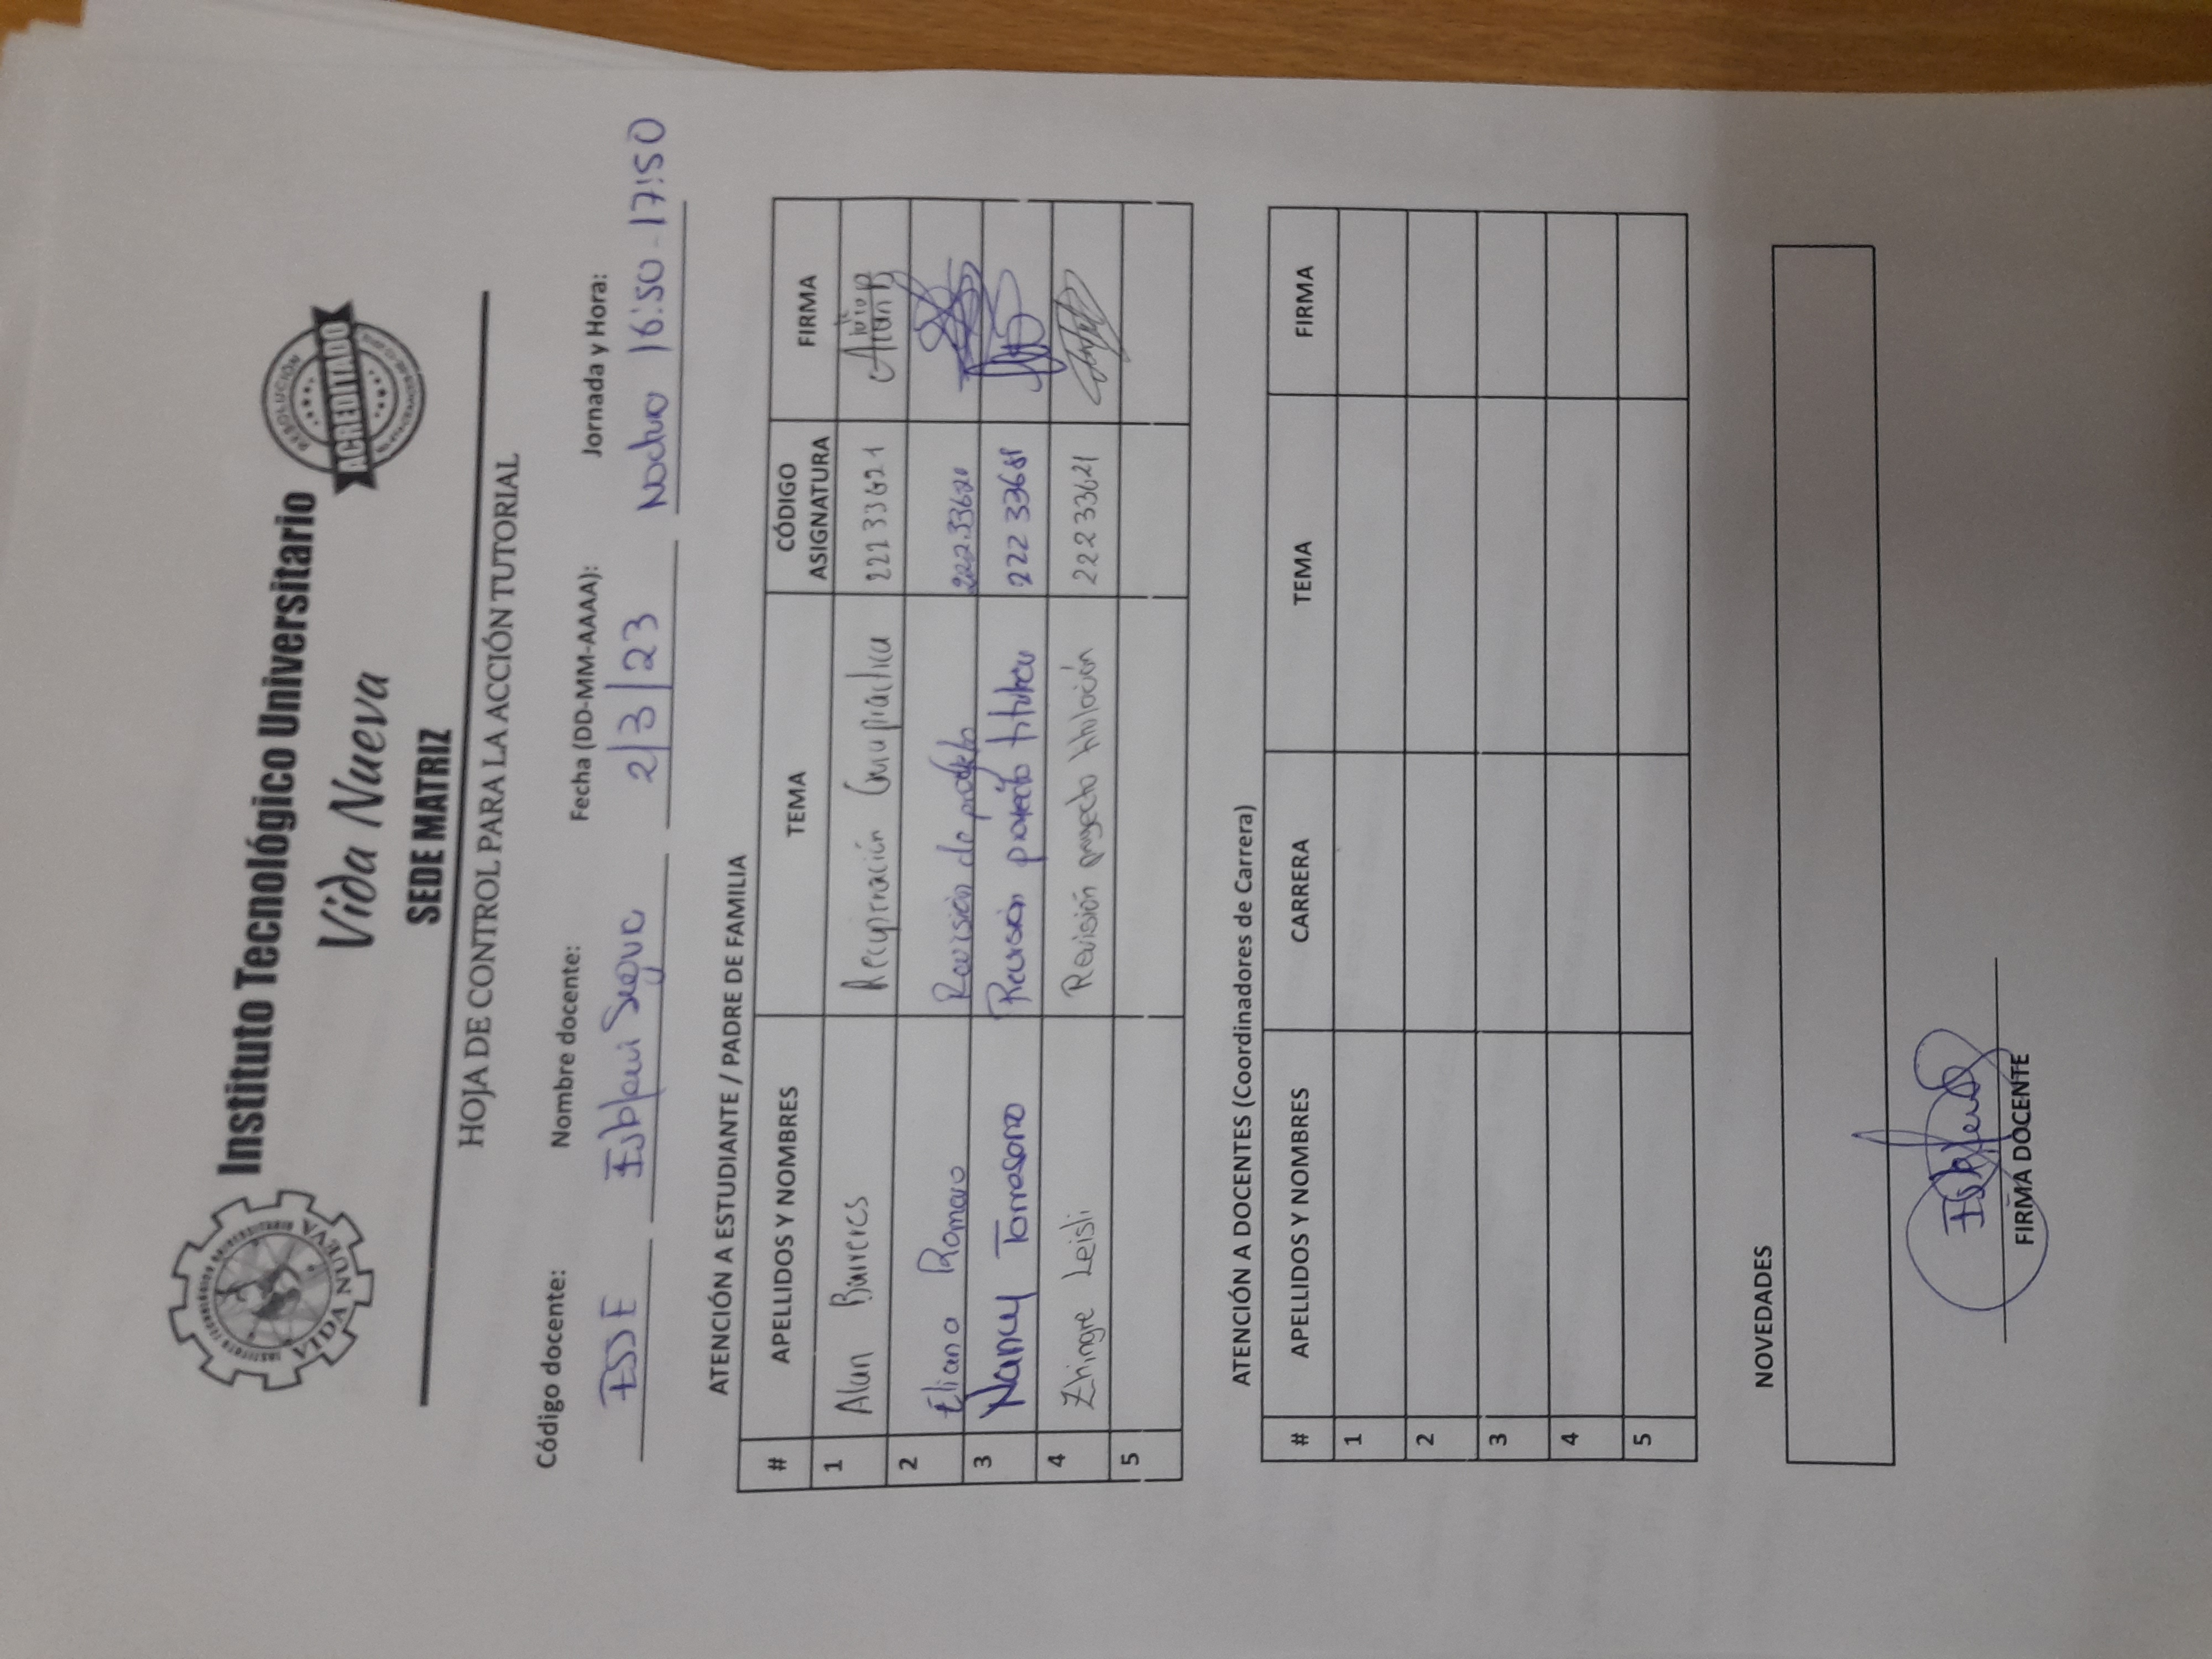 INSTITUTO TECNOLÓGICO UNIVERSITARIO
VIDA NUEVA
Instituto Tecnológico Universitario
Vida Nueva
SEDE MATRIZ
RESOLUCIÓN
ACREDITADO
HOJA DE CONTROL PARA LA ACCIÓN TUTORIAL
Código docente: Nombre docente: Fecha (DD-MM-AAAA): Jornada y Hora:
ESSE Segura 2/3/23 16:50-17:50
ATENCIÓN A ESTUDIANTE / PADRE DE FAMILIA
# APELLIDOS Y NOMBRES TEMA CÓDIGO ASIGNATURA FIRMA
1 Alan Recuperación
2 Eliana Romero Revisión de
3 Nancy Revisión proyecto
4 Zhingre Leisli Revisión proyecto titulación 22233621
5
ATENCIÓN A DOCENTES (Coordinadores de Carrera)
# APELLIDOS Y NOMBRES CARRERA TEMA FIRMA
1
2
3
4
5
NOVEDADES
FIRMA DOCENTE